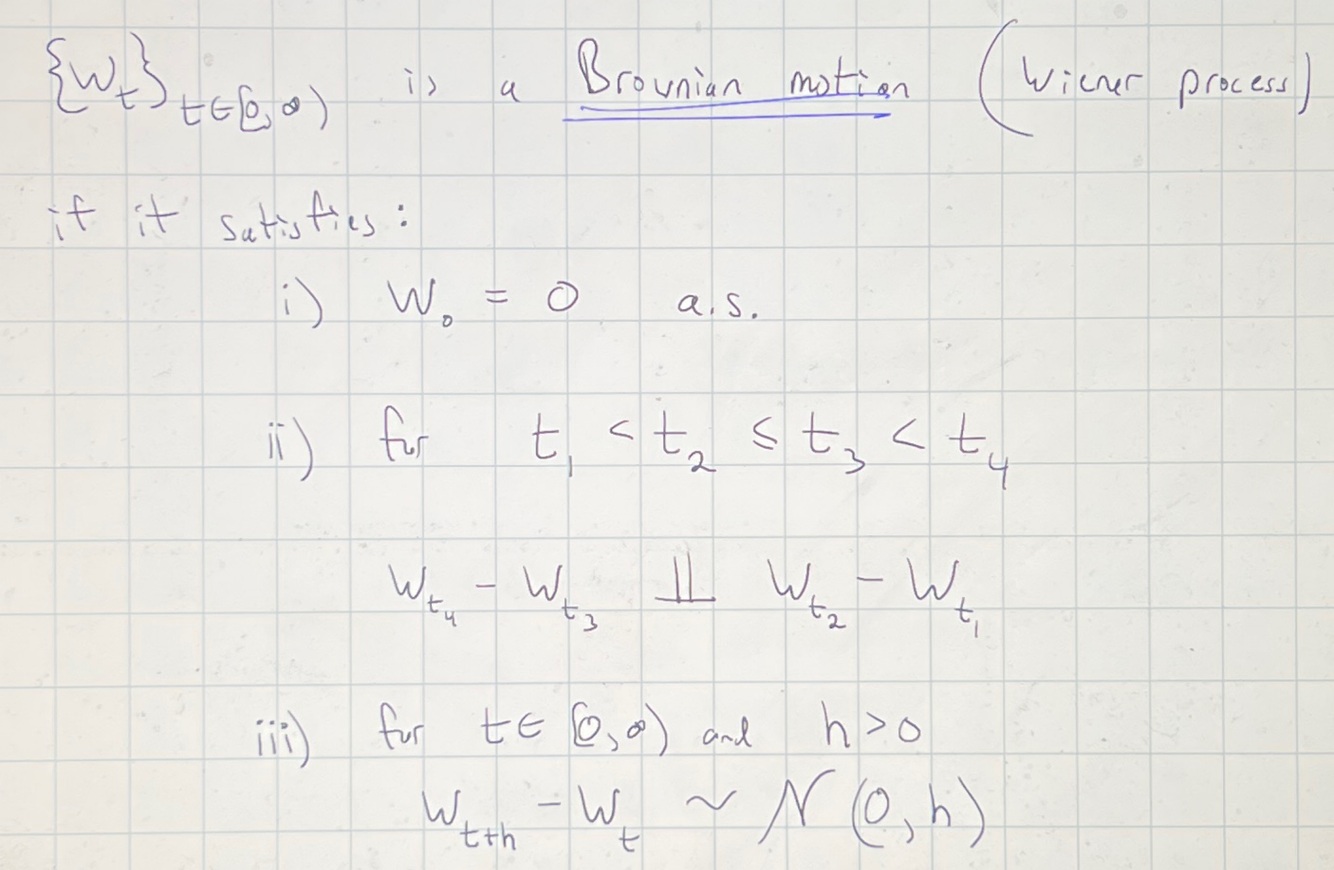 {W_t}_{t∈[0,∞)} is a Brownian motion (Wiener process)
if it satisfies:
i) W_0 = 0 a.s.
ii) for t_1 < t_2 ≤ t_3 < t_4
W_{t_4} - W_{t_3} ⫫ W_{t_2} - W_{t_1}
iii) for t∈[0,∞) and h>0
W_{t+h} - W_t ~ N(0,h)